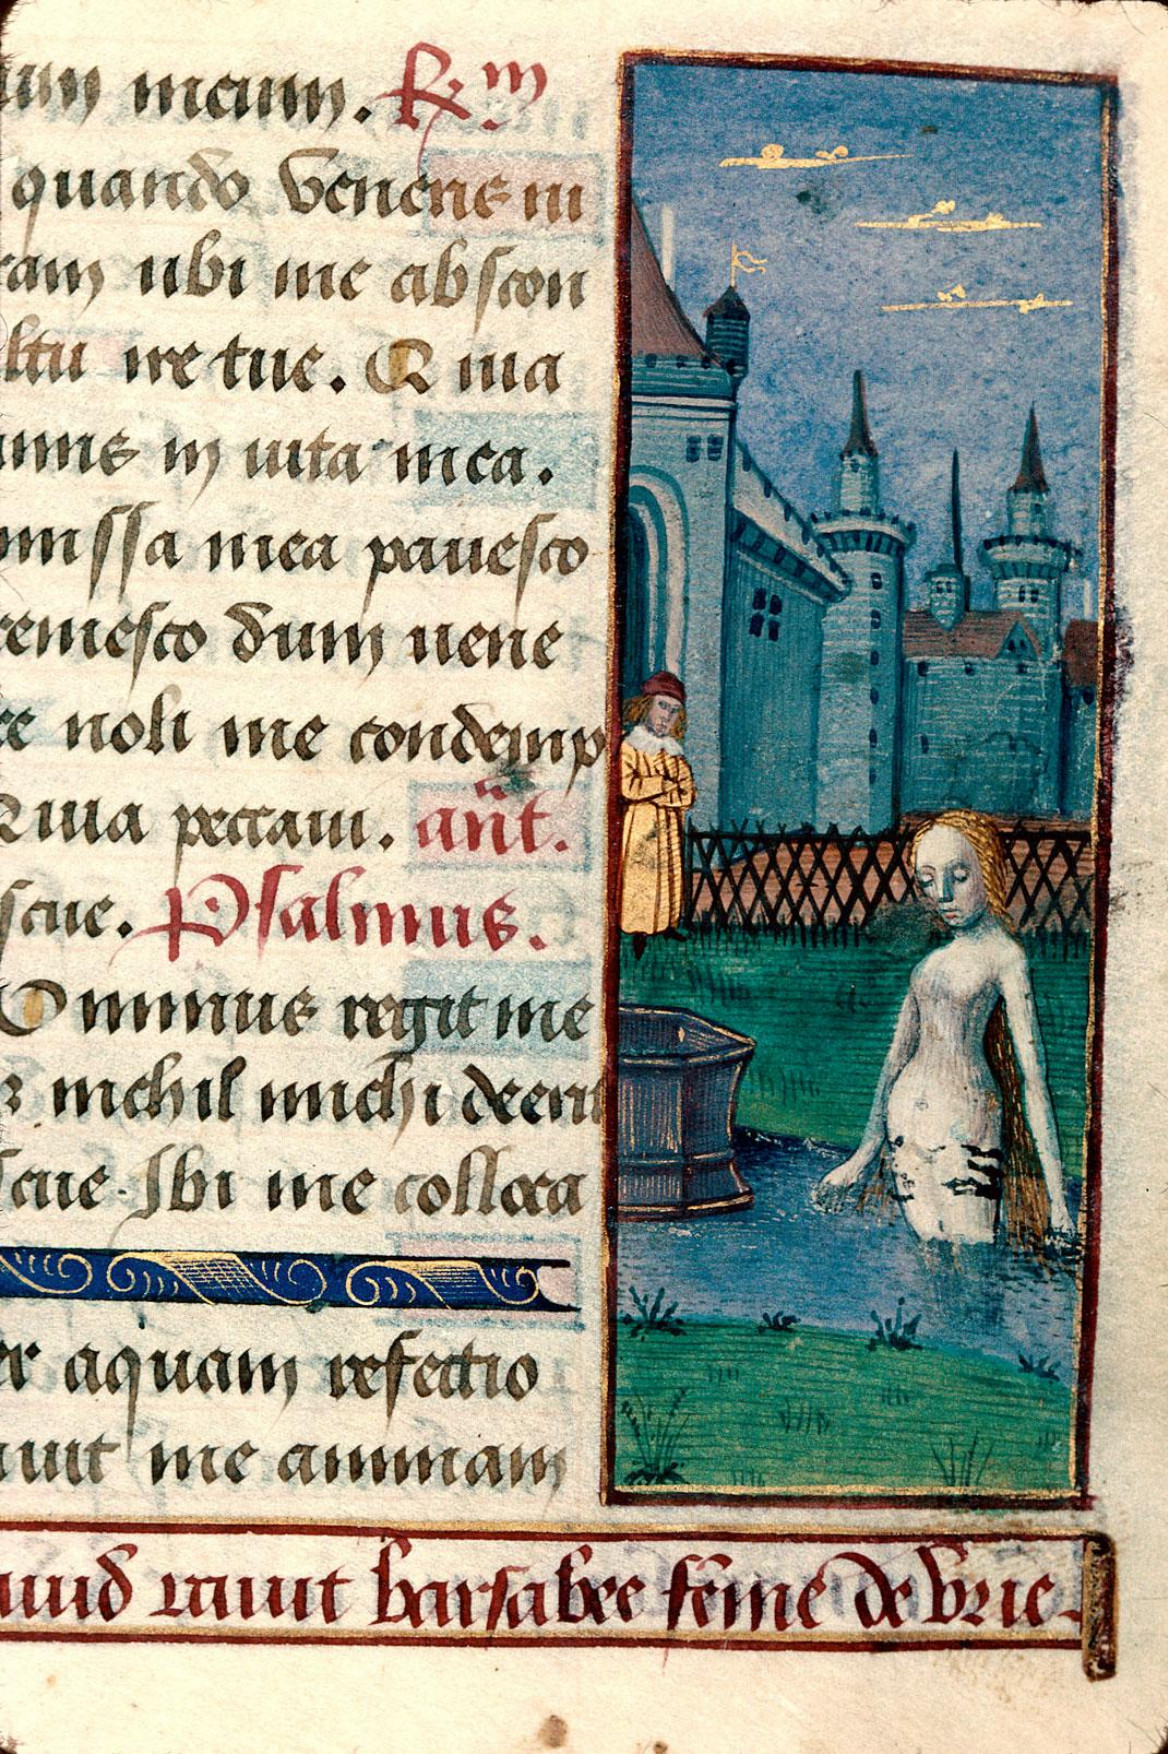 meum. R̃m
quando veneris in
ram ubi me abscon
ltu ire tue. Quia
nimis in vita mea.
missa mea pavesco
remesco dum vene
re noli me condemp
Quia peccavi. añt.
scue. Psalmus.
Dominus regit me
z nichil michi deerit
scue. Ibi me colloca
er aquam refectio
avit me animam
uid ravit barsabee fẽme de Vrie.